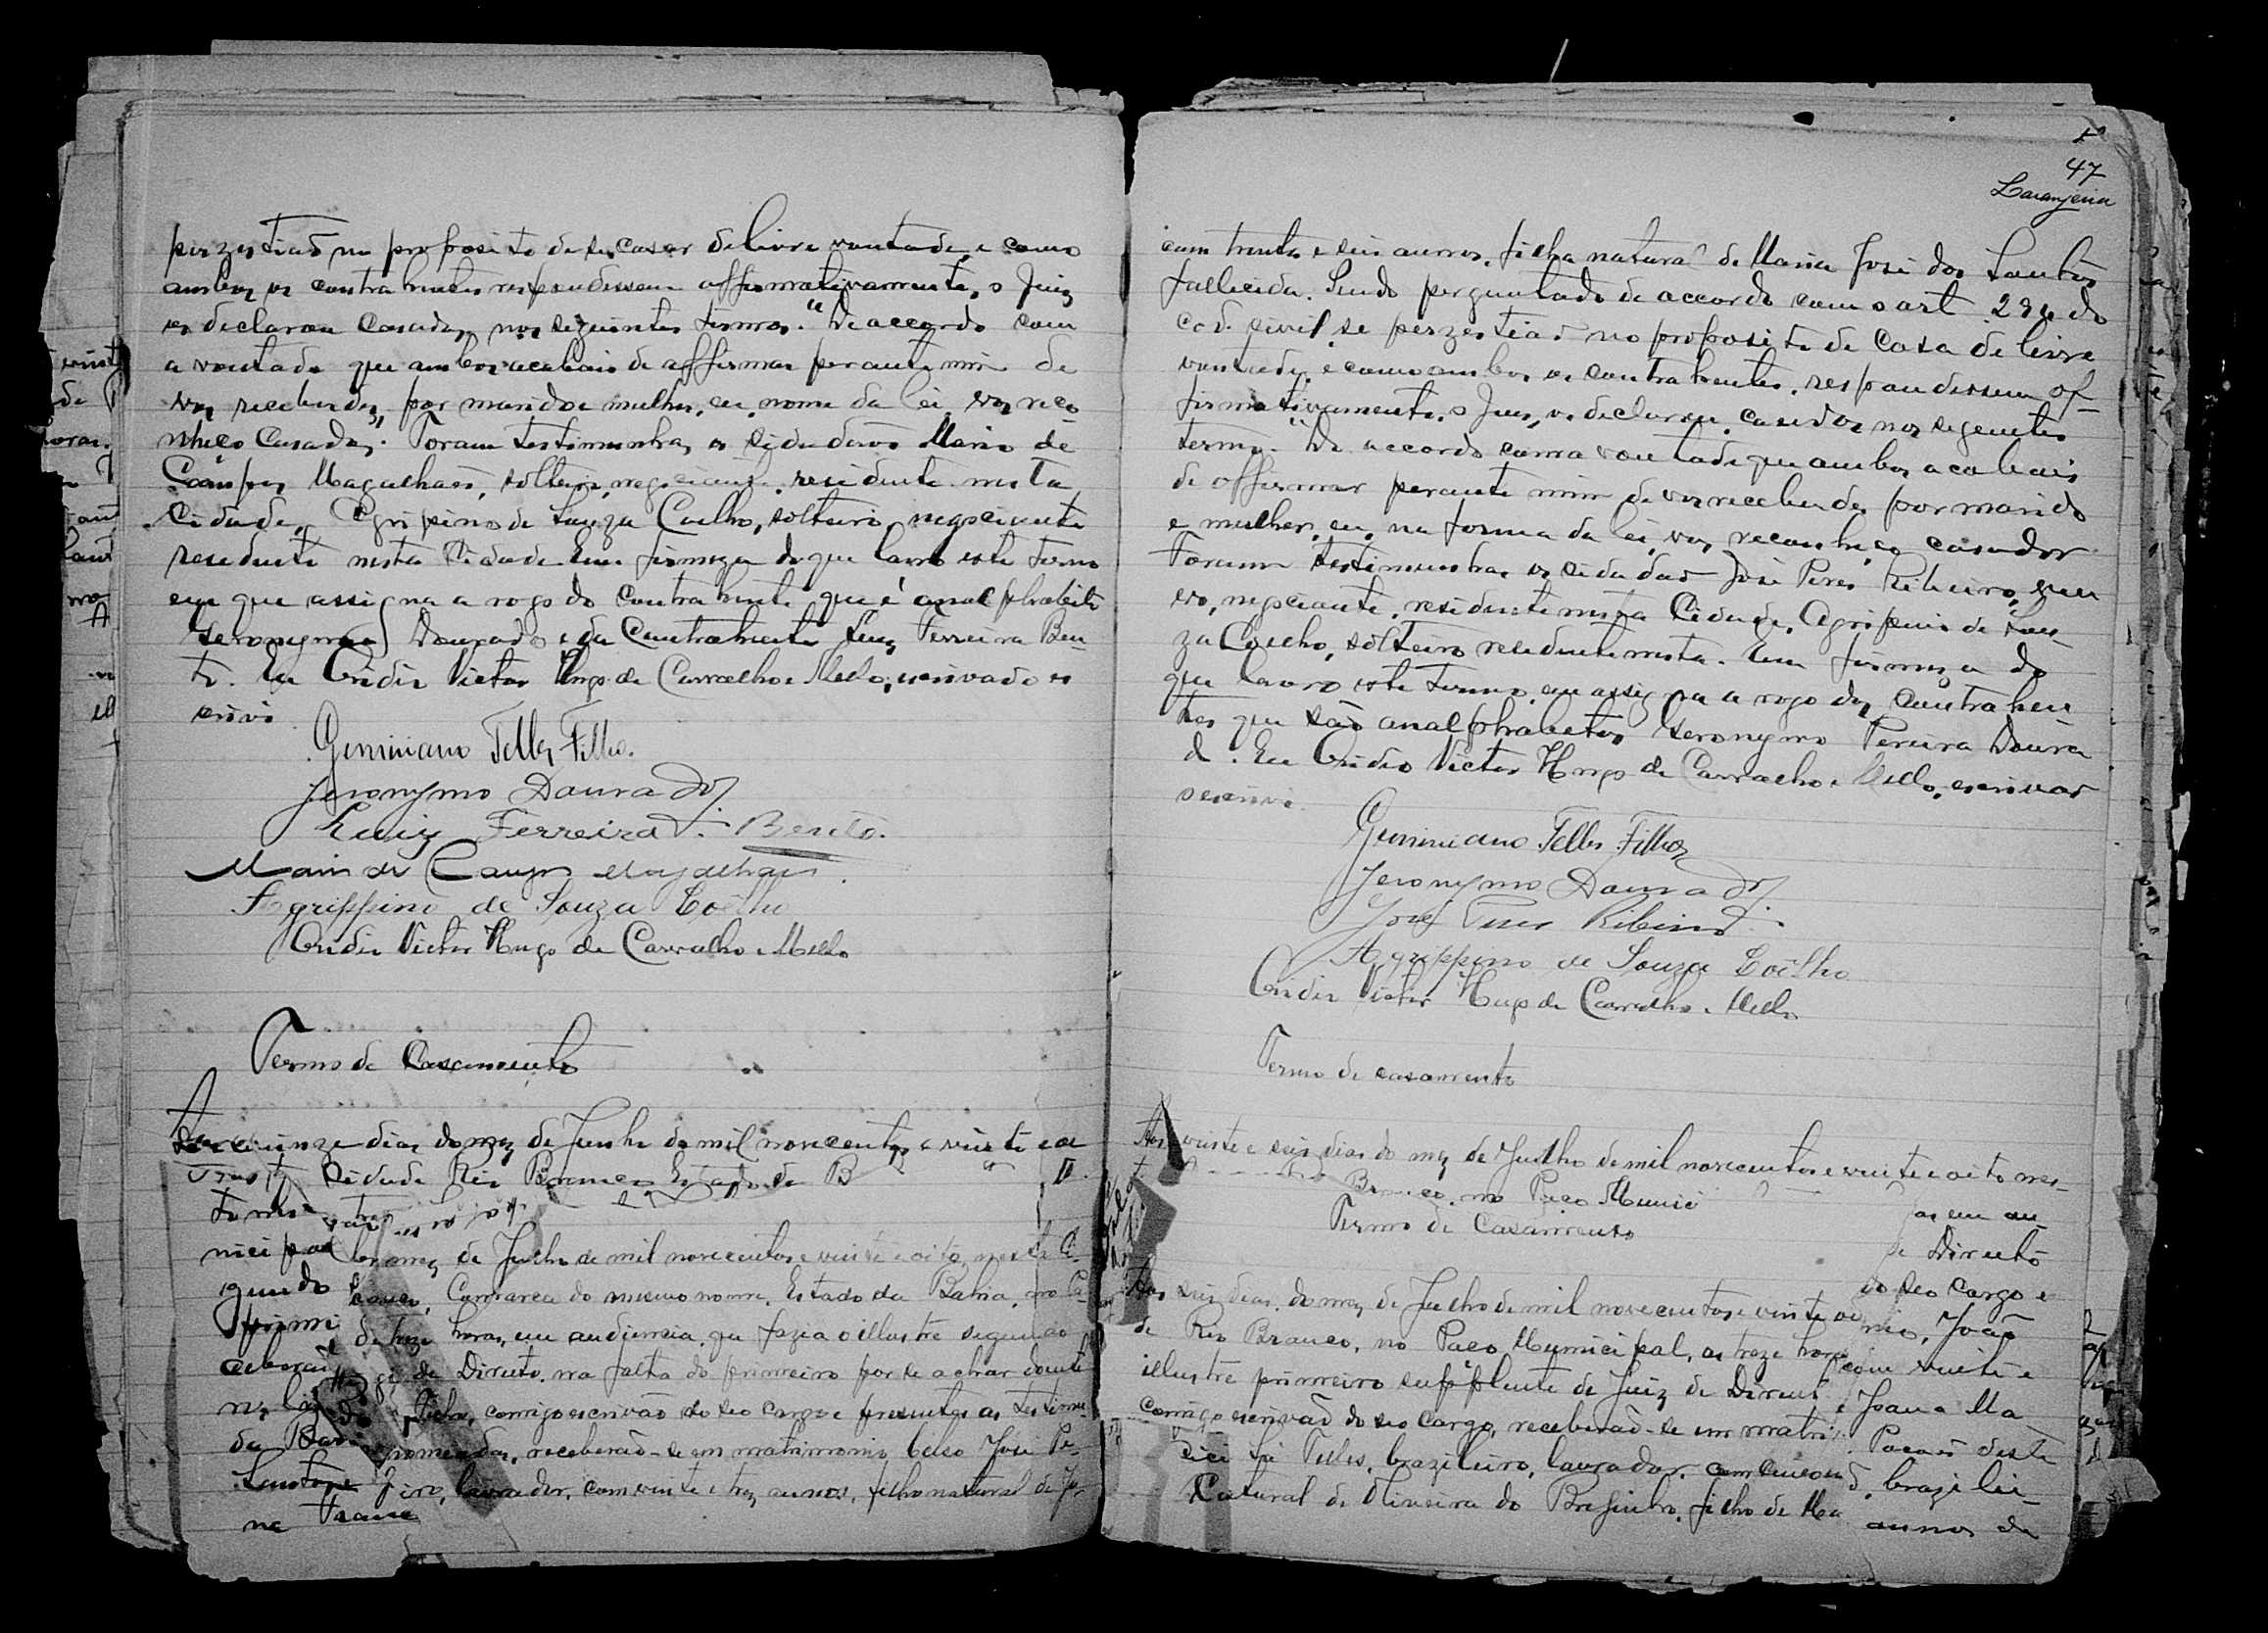 perzestiaõ no proposito de se casar de livre vontade, e como
ambos os contrahentes respondessem affirmativamente, o Juiz
os declarou casados, nos seguintes termos. "De accordo com
a vontade que ambos acabais de affirmar perante mim de
vos receberdes por marido e mulher, eu, nome da lei, vos reco
nheço casados". Foram testimunhas os cidadaõs Mario de
Campos Magalhaes, solteiro, negociante, residente nesta
Cidade, Agripino de Souza Coelho, solteiro, negociante
residente nesta Cidade. Em firmeza do que lavro este termo
em que assigna a rogo do contrahente que é analphabeto
Geronymo Dourado e da Contrahente Luiz Ferreira Ben-
to. Eu Ovidio Victor Hugo de Carvalho e Mello, escrivaõ o es
crivi
Geminiano Telles Filho.
Jeronymo Dourado.
Luiz Ferreira Bento.
Mario de Campos Magalhaes.
Agrippino de Souza Coêlho
Ovidio Victor Hugo de Carvalho e Mello
Termo de Casamento
quinze dias do mez de Junho de mil novecentos e vinte e oi
Cidade Rio Branco Estado da B
nicipal mez de Julho de mil novecentos e vinte e oito, nesta Ci
gundo Comarca do mesmo nome, Estado da Bahia, no Pa
primei de treze horas, em audiencia que fazia o illustre segundo
ceberaõ de Direito, na falta do primeiro por se achar doente
comigo escrivão do seo cargo e presentes as testimu
da nomeadas, receberaõ-se em matrimonio Celso José Pe
Santos lavrador, com vinte e tres annos, filho natural de Jo
na
47
Laranjeira
com trinta e seis annos, filha natural de Maria José dos Santos
fallecida. Sendo perguntado de accordo com o art 234 do
cod. civil se perzestiaõ no proposito de casa de livre
vontade, e como ambos os contrahentes respondessem af-
firmativamente, o Juiz, os declarou casados nos seguentes
termo. "De accordo com a vontade que ambos acabais
de affirmar perante mim de vos receberdes por marido
e mulher, eu, na forma da lei, vos reconheço casados.
Foram testimunhas os cidadaõ José Peres Ribeiro,
negociante, residente nesta Cidade, Agripino de Sou
za Coelho, solteiro residente nesta. Em firmeza do
que lavro este termo em assigna a rogo dos contrahen
tes que saõ analphabetos Geronymo Pereira Doura
do. Eu Ovidio Victor Hugo de Carvalho e Mello, escrivaõ
o escrivi.
Geminiano Telles Filho
Jeronymo Dourado.
José Peres Ribeiro.
Agrippino de Souza Coêlho
Ovidio Victor Hugo de Carvalho e Mello
Termo de casamento
Aos vinte e seis dias do mez de Julho de mil novecentos e vinte e oito nes-
no Paço Munici
Termo de Casamento
as em au-
de Direito
do seo cargo e
Aos seis dias do mez de Julho de mil novecentos e vinte oi nio, João
de Rio Branco, no Paço Municipal, as treze horas com vinte e
illustre primeiro supplente de Juiz de Direito e Joana Ma
comigo escrivaõ do seo cargo, receberaõ-se em matri deste
Telles, brazileiro, lavrador, com brazilei-
Natural de Oliveira do Brejinho, filho de Ma annos de